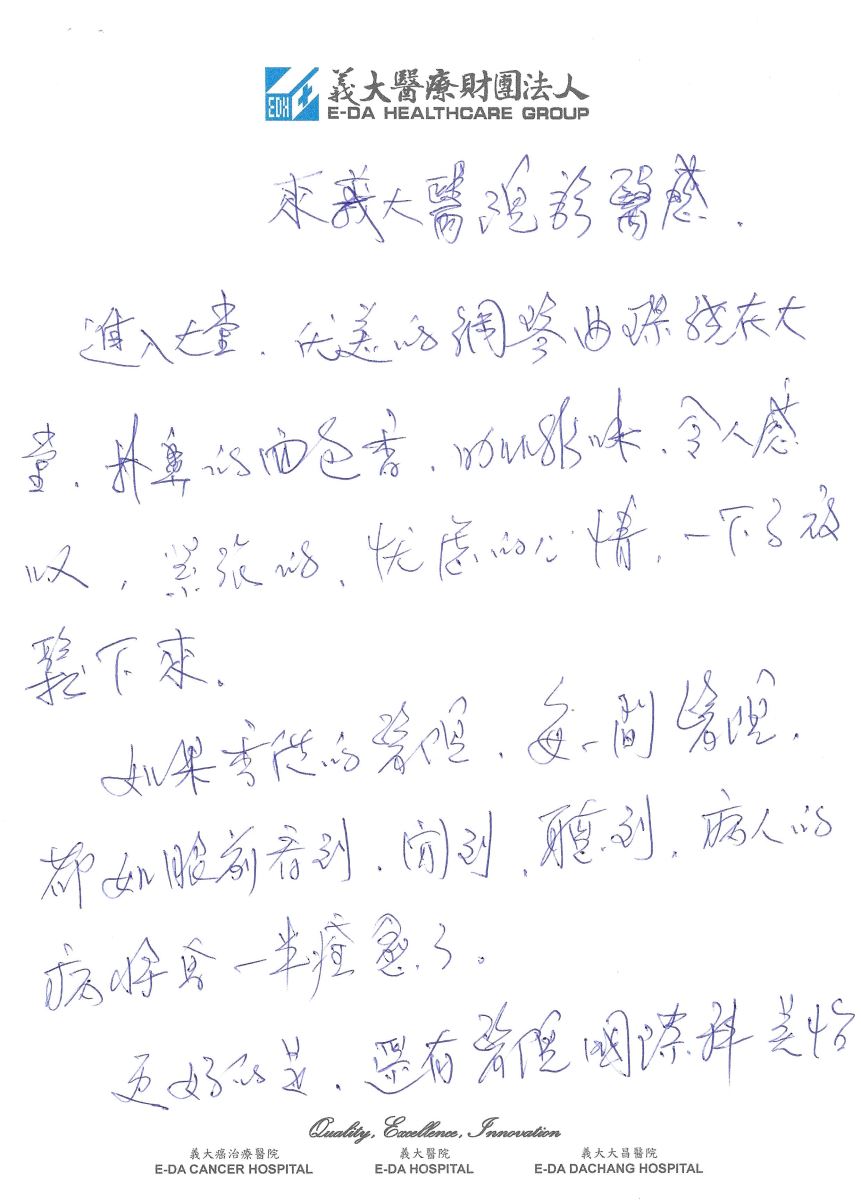 EDH
義大醫療財團法人
E-DA HEALTHCARE GROUP
來義大醫院診醫感.
進入大堂,优美的鋼琴曲環繞在大
堂,扑鼻的面包香,咖啡飲味,令人感
叹,紧張的,忧慮的心情,一下子放
鬆下來.
如果香港的醫院,每一間醫院,
都如眼前看到,聞到,聽到,病人的
病將會一半痊愈了。
更好的是,還有醫院國際科美怡
Quality, Excellence, Innovation
義大癌治療醫院 義大醫院 義大大昌醫院
E-DA CANCER HOSPITAL E-DA HOSPITAL E-DA DACHANG HOSPITAL